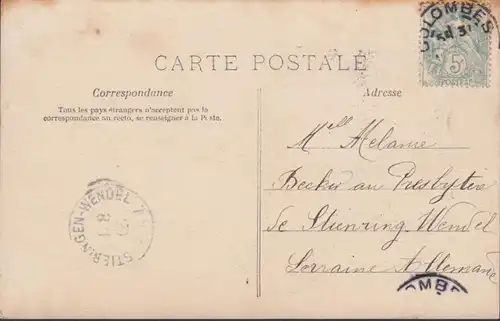 COLOMBES
5c
POSTES
CARTE POSTALE
Correspondance
Tous les pays étrangers n'acceptent pas la
correspondance au recto, se renseigner à la Poste.
Adresse
Mell Melanie
Becker au Presbytère
de Stienring Wendel
Lorraine Allemande
STIERINGEN-WENDEL
OMBE